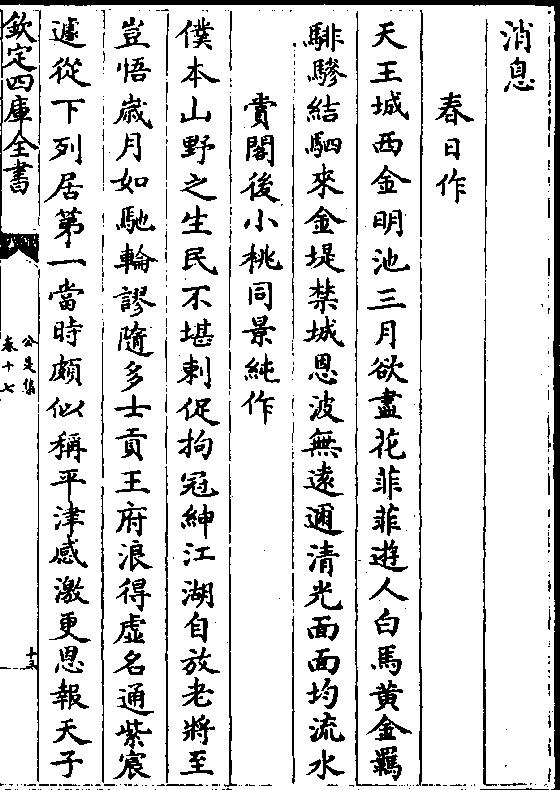 消息
春日作
天王城西金明池三月欲盡花菲菲遊人白馬黃金羈
騑驂結駟來金堤禁城恩波無遠邇清光面面均流水
賞閣後小桃同景純作
僕本山野之生民不堪刺促拘冠紳江湖自放老將至
豈悟歳月如馳輪謬隨多士貢王府浪得虛名通紫宸
遽從下列居第一當時頗似稱平津感激更思報天子
欽定四庫全書
公是集
卷十七